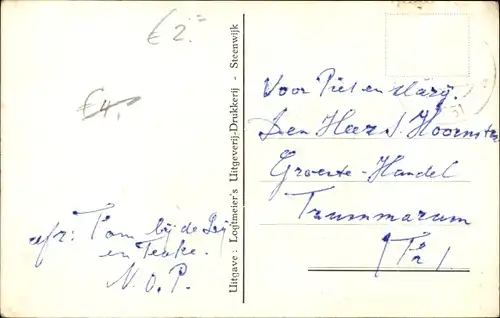 € 2.=
€4,
afz: Tom bij de Leij
en Teake.
N.O.P.
Uitgave: Logtmeier's Uitgeverij-Drukkerij - Steenwijk
Voor Piet en Marij.
Den Heer J. Hoornstra
Groente-Handel
Trummarum
(Fr)